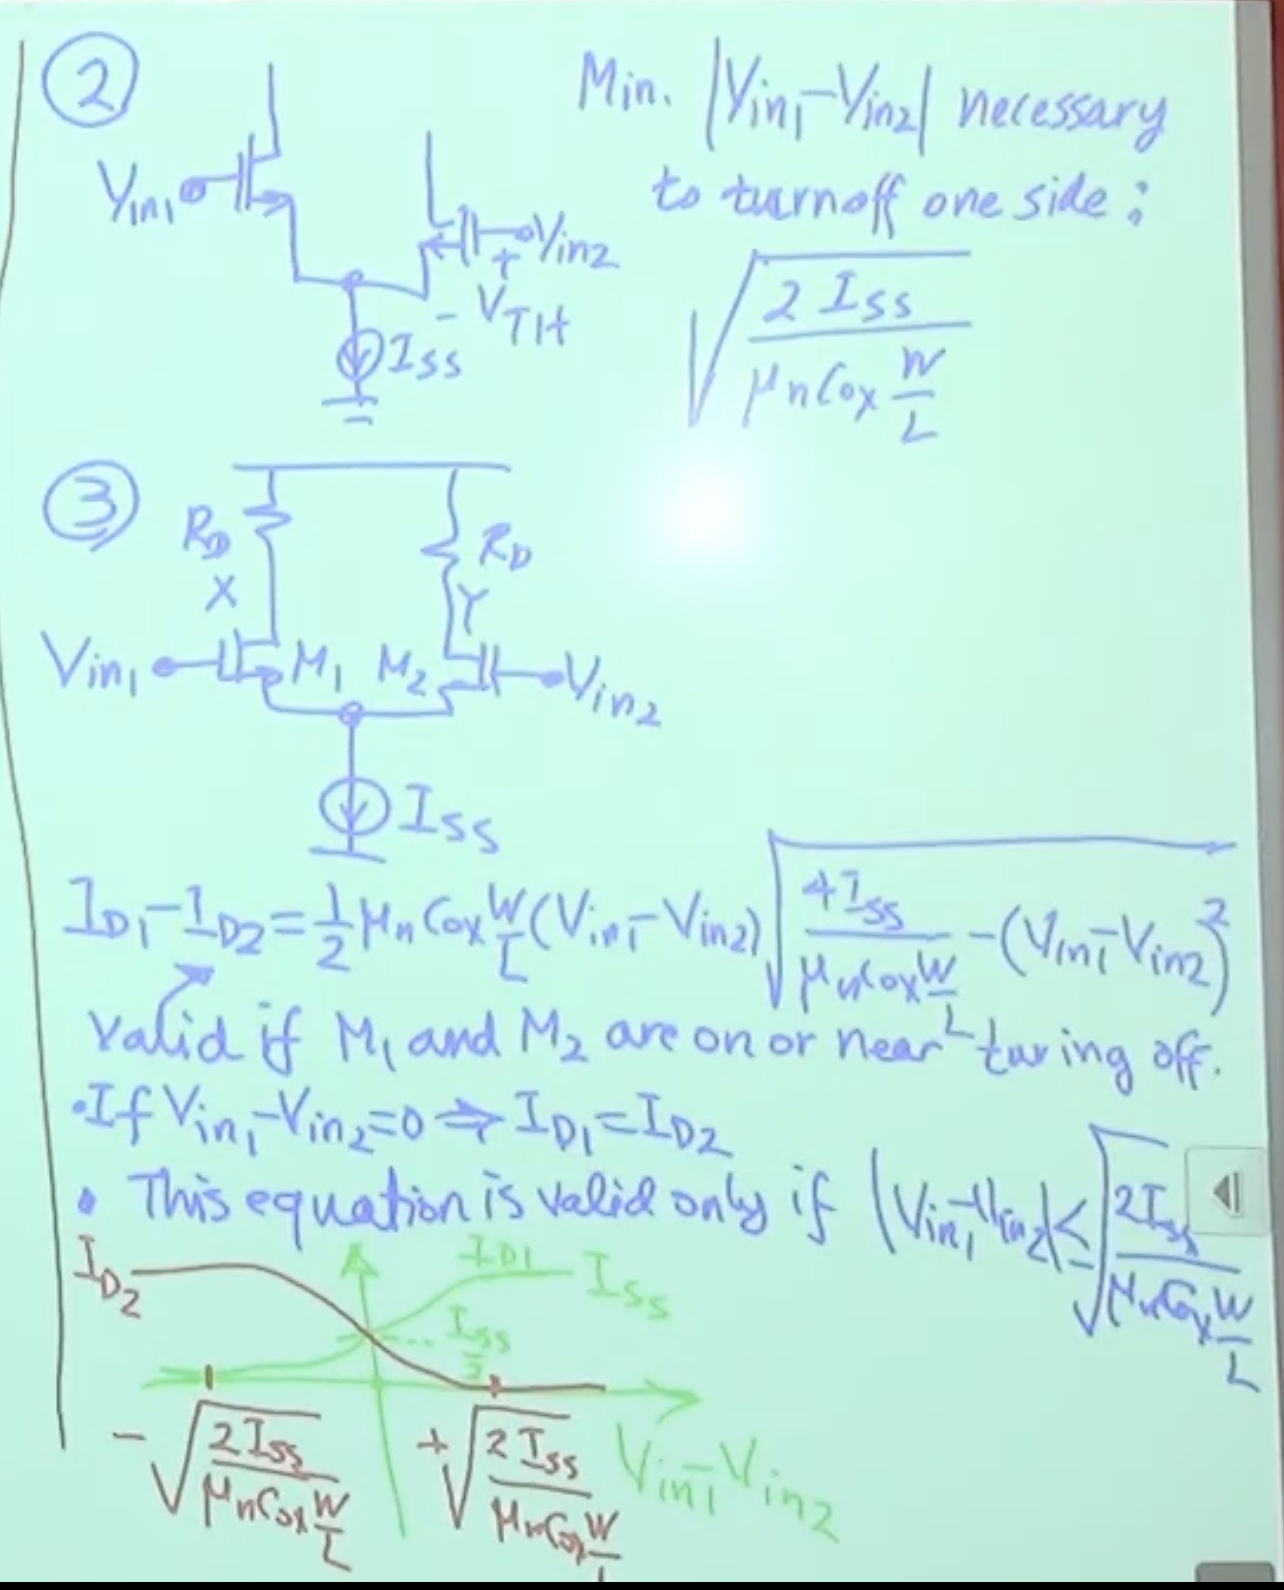 ②
Min. |Vin1-Vin2| necessary
to turnoff one side:
Vin1
Vin2
+
- VTH
ISS
√(2 ISS / μnCox W/L)
③
RD
RD
X
Y
Vin1
M1 M2
Vin2
ISS
ID1-ID2=1/2 μnCox W/L (Vin1-Vin2) √(4ISS / μnCox W/L -(Vin1-Vin2)²)
Valid if M1 and M2 are on or near turing off.
•If Vin1-Vin2=0 ⇒ ID1=ID2
• This equation is valid only if |Vin1-Vin2|≤√(2ISS / μnCox W/L)
ID2
ID1
ISS
ISS/2
-√(2ISS / μnCox W/L)
+√(2ISS / μnCox W/L)
Vin1-Vin2